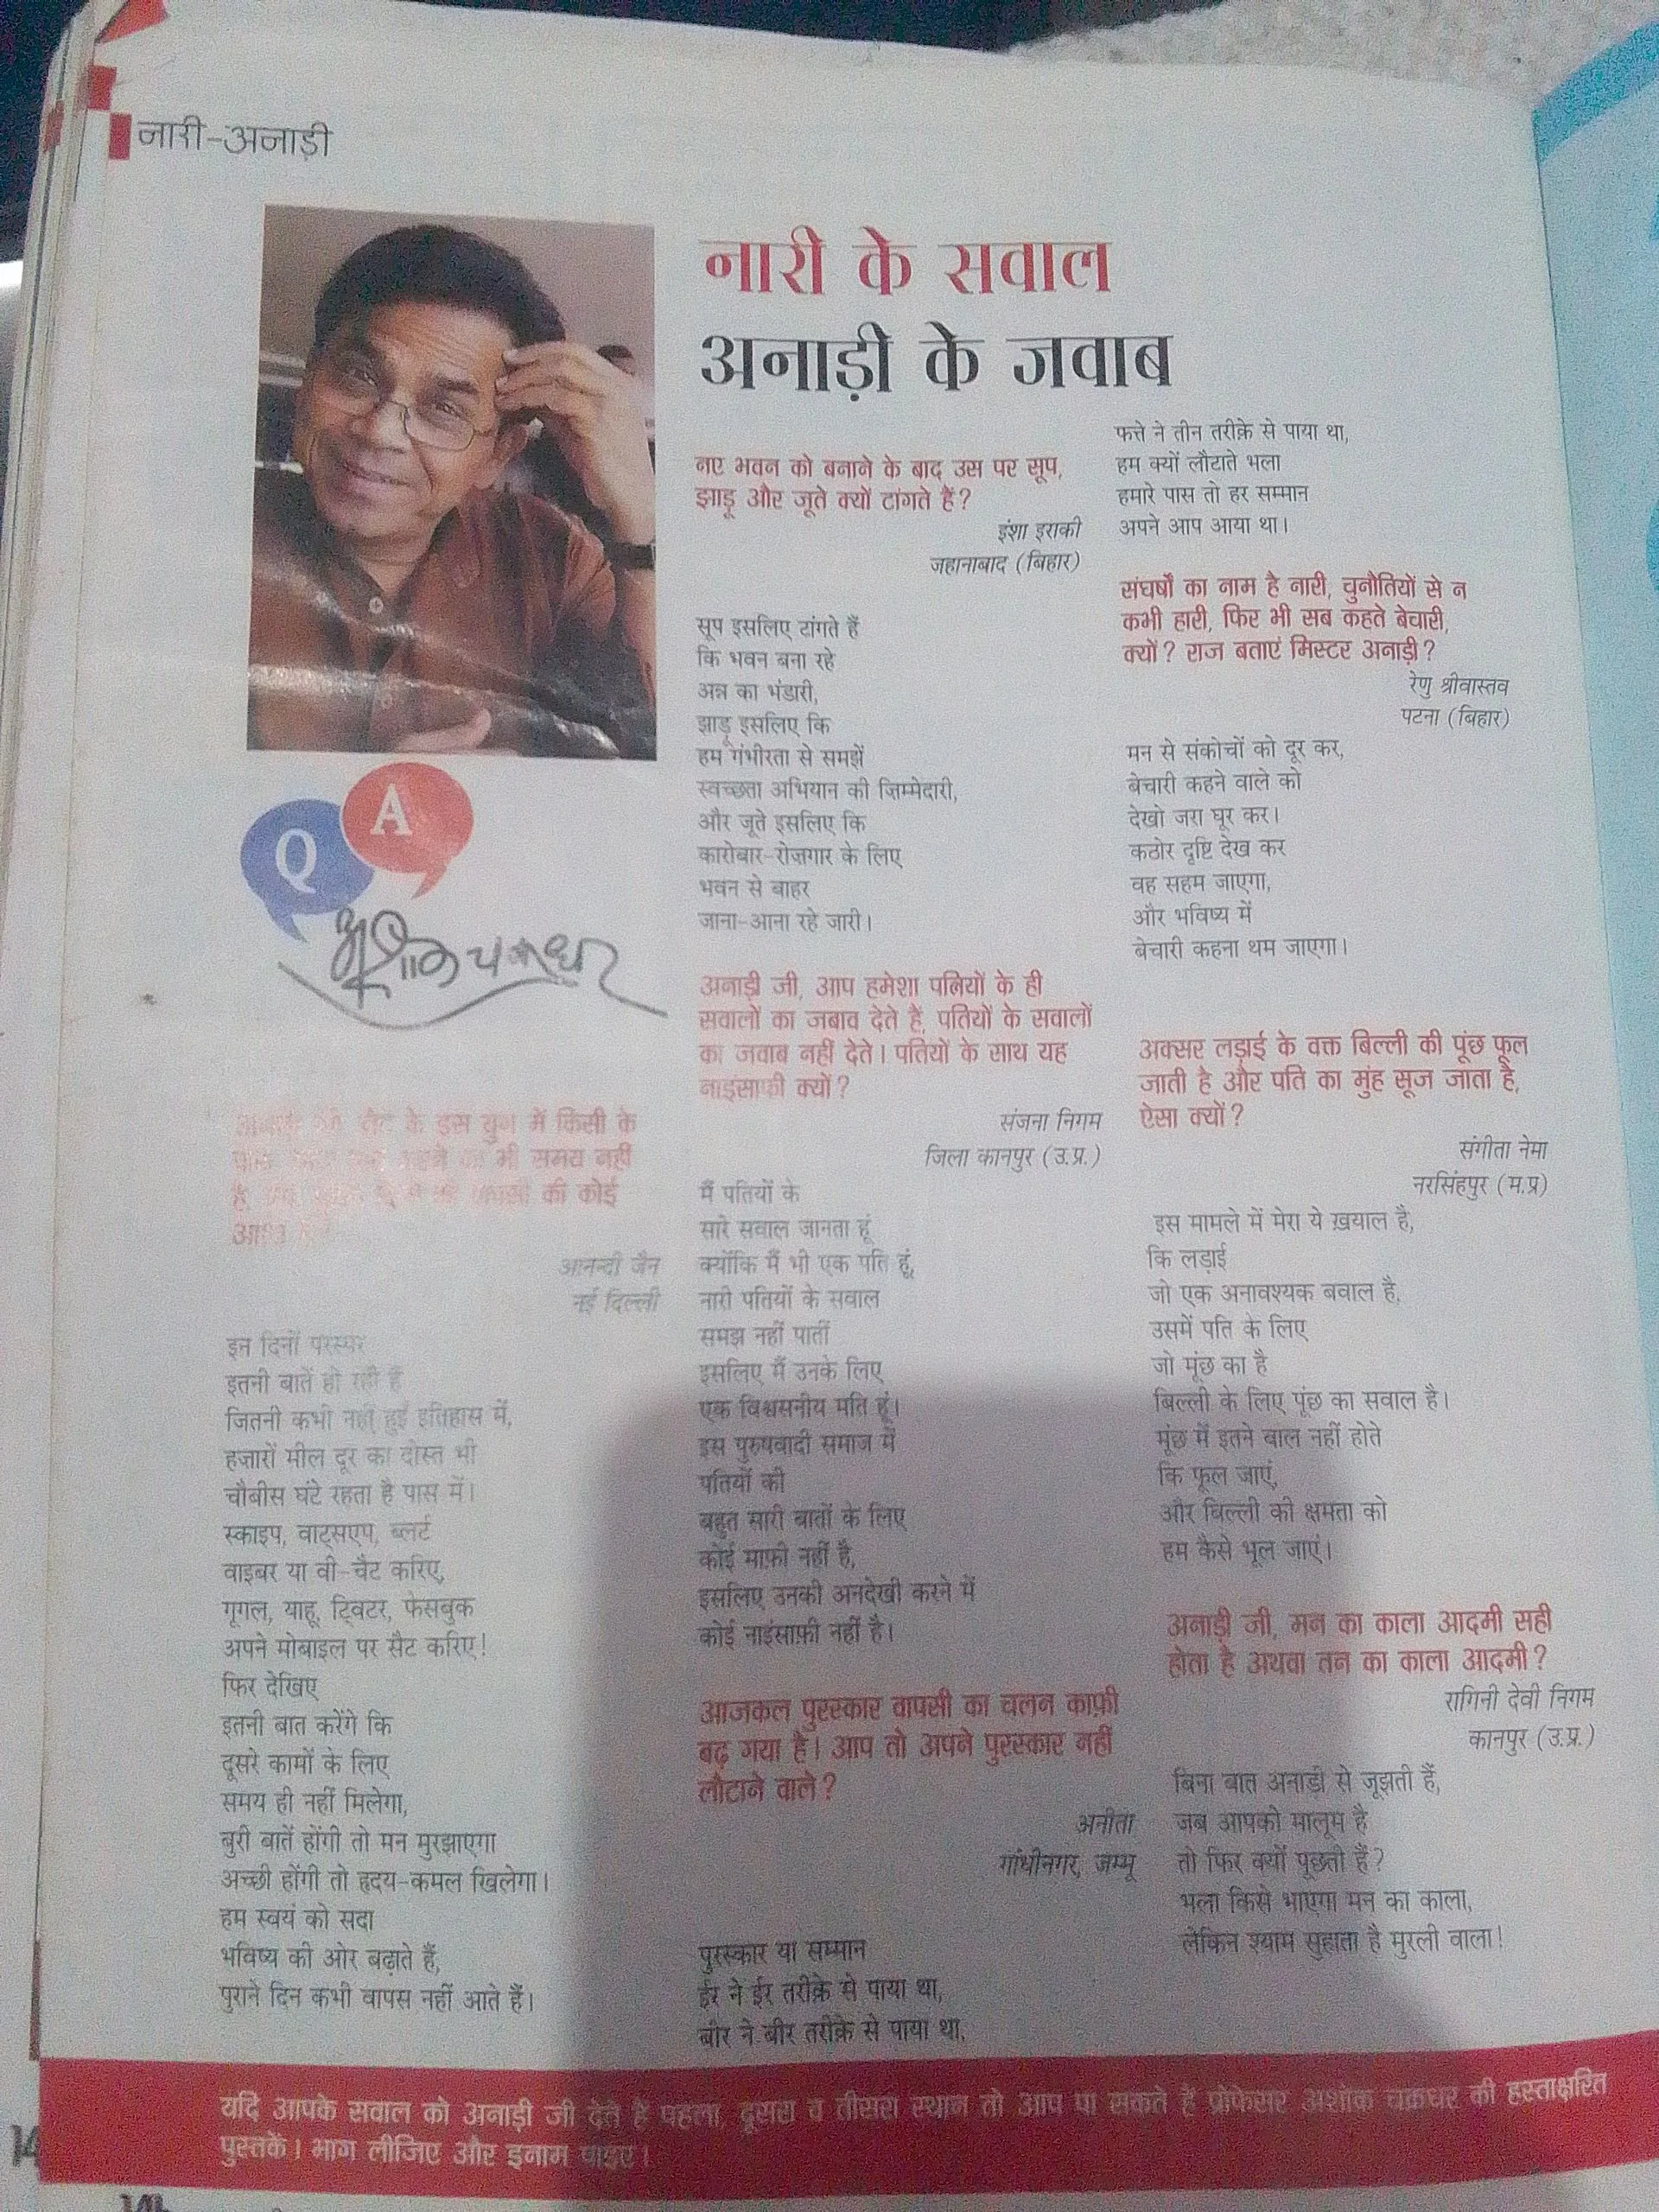 नारी-अनाड़ी
नारी के सवाल
अनाड़ी के जवाब
Q A
के इस युग में किसी के
भी समय नहीं
है की कोई
आनन्दी जैन
नई दिल्ली
इन दिनों परस्पर
इतनी बातें हो रही हैं
जितनी कभी नहीं हुई इतिहास में,
हज़ारों मील दूर का दोस्त भी
चौबीस घंटे रहता है पास में।
स्काइप, वाट्सएप, ब्लर्ट
वाइबर या वी-चैट करिए,
गूगल, याहू, ट्विटर, फेसबुक
अपने मोबाइल पर सैट करिए!
फिर देखिए
इतनी बात करेंगे कि
दूसरे कामों के लिए
समय ही नहीं मिलेगा,
बुरी बातें होंगी तो मन मुरझाएगा
अच्छी होंगी तो हृदय-कमल खिलेगा।
हम स्वयं को सदा
भविष्य की ओर बढ़ाते हैं,
पुराने दिन कभी वापस नहीं आते हैं।
नए भवन को बनाने के बाद उस पर सूप,
झाड़ू और जूते क्यों टांगते हैं?
इंशा इराकी
जहानाबाद (बिहार)
सूप इसलिए टांगते हैं
कि भवन बना रहे
अन्न का भंडारी,
झाड़ू इसलिए कि
हम गंभीरता से समझें
स्वच्छता अभियान की ज़िम्मेदारी,
और जूते इसलिए कि
कारोबार-रोज़गार के लिए
भवन से बाहर
जाना-आना रहे जारी।
अनाड़ी जी, आप हमेशा पत्नियों के ही
सवालों का जबाव देते हैं, पतियों के सवालों
का जवाब नहीं देते। पतियों के साथ यह
नाइंसाफी क्यों?
संजना निगम
जिला कानपुर (उ.प्र.)
मैं पतियों के
सारे सवाल जानता हूं
क्योंकि मैं भी एक पति हूं,
नारी पतियों के सवाल
समझ नहीं पातीं
इसलिए मैं उनके लिए
एक विश्वसनीय मति हूं।
इस पुरुषवादी समाज में
पतियों की
बहुत सारी बातों के लिए
कोई माफ़ी नहीं है,
इसलिए उनकी अनदेखी करने में
कोई नाइंसाफ़ी नहीं है।
आजकल पुरस्कार वापसी का चलन काफ़ी
बढ़ गया है। आप तो अपने पुरस्कार नहीं
लौटाने वाले?
अनीता
गांधीनगर, जम्मू
पुरस्कार या सम्मान
ईर ने ईर तरीक़े से पाया था,
बीर ने बीर तरीक़े से पाया था,
फत्ते ने तीन तरीक़े से पाया था,
हम क्यों लौटाते भला
हमारे पास तो हर सम्मान
अपने आप आया था।
संघर्षों का नाम है नारी, चुनौतियों से न
कभी हारी, फिर भी सब कहते बेचारी,
क्यों? राज बताएं मिस्टर अनाड़ी?
रेणु श्रीवास्तव
पटना (बिहार)
मन से संकोचों को दूर कर,
बेचारी कहने वाले को
देखो जरा घूर कर।
कठोर दृष्टि देख कर
वह सहम जाएगा,
और भविष्य में
बेचारी कहना थम जाएगा।
अक्सर लड़ाई के वक्त बिल्ली की पूंछ फूल
जाती है और पति का मुंह सूज जाता है,
ऐसा क्यों?
संगीता नेमा
नरसिंहपुर (म.प्र)
इस मामले में मेरा ये ख़याल है,
कि लड़ाई
जो एक अनावश्यक बवाल है,
उसमें पति के लिए
जो मूंछ का है
बिल्ली के लिए पूंछ का सवाल है।
मूंछ में इतने बाल नहीं होते
कि फूल जाएं,
और बिल्ली की क्षमता को
हम कैसे भूल जाएं।
अनाड़ी जी, मन का काला आदमी सही
होता है अथवा तन का काला आदमी?
रागिनी देवी निगम
कानपुर (उ.प्र.)
बिना बात अनाड़ी से जूझती हैं,
जब आपको मालूम है
तो फिर क्यों पूछती हैं?
भला किसे भाएगा मन का काला,
लेकिन श्याम सुहाता है मुरली वाला!
यदि आपके सवाल को अनाड़ी जी देते हैं पहला, दूसरा व तीसरा स्थान तो आप पा सकते हैं प्रोफेसर अशोक चक्रधर की हस्ताक्षरित
पुस्तकें। भाग लीजिए और इनाम पाइए।